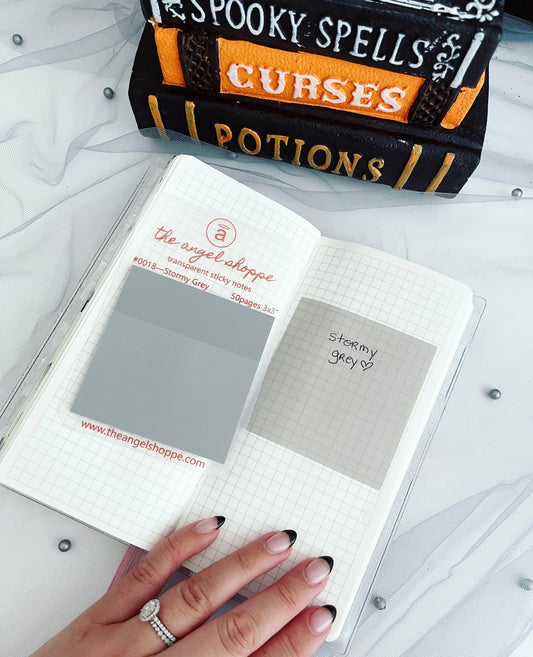 SPOOKY SPELLS
CURSES
POTIONS
ā
the angel shoppe
transparent sticky notes
#0018—Stormy Grey 50pages 3x3"
www.theangelshoppe.com
STORMY
GREY♡